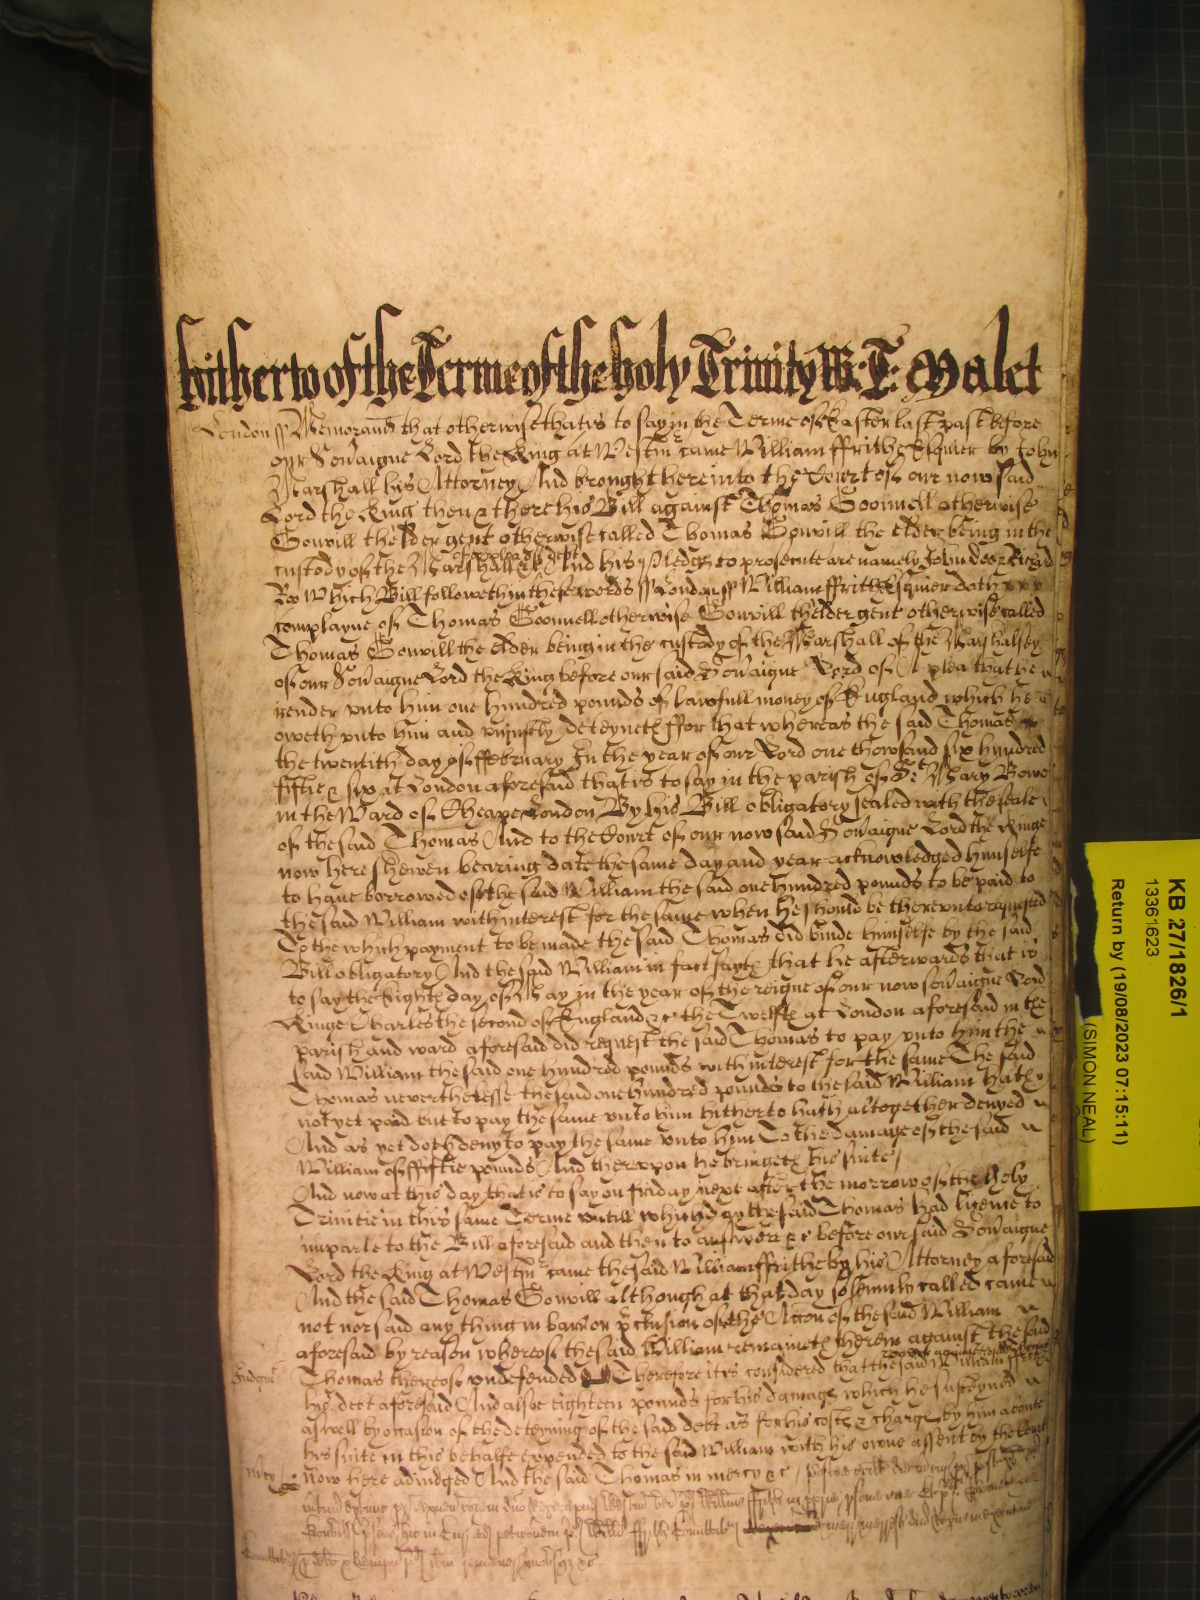 hitherto of the Terme of the holy Trinity W: T: Malet
London ss Memorand that otherwise that is to say in the Terme of Easter last past before
our Sov'aigne Lord the King at Westm' came William ffrithe Esquier by John
Marshall his Attorney And brought here into the Court of our now said
Lord the King then & there his Bill against Thomas Goonvell otherwise
Gonvill thelder gent otherwise called Thomas Gonvill the elder being in the
custody of the Marshall &c of a plea of debt And his Pledges to prosecute are namely John doe & Richd
Roe Which Bill followeth in these words ss London ss William ffrith Esquier doth
complayne of Thomas Goonvell otherwise Gonvill thelder gent otherwise called
Thomas Gonvill the elder being in the custody of the Marshall of the Marshalsey
of our Sov'aigne Lord the King before our said Sov'aigne Lord of A plea that he
render unto him one hundred pounds of lawfull money of England which he
oweth unto him and uniustly deteyneth ffor that whereas the said Thomas
the twentith day of ffebruary In the year of our Lord one thowsand six hundred
fiftie & six at London aforesaid that is to say in the parish of St Mary Bowe
in the Ward of Cheape London By his Bill obligatory sealed with the seale
of the said Thomas And to the Court of our now said Sov'aigne Lord the Kinge
now here shewen bearing date the same day and year acknowledged himselfe
to have borrowed of the said William the said one hundred pounds to be paid to
the said William with interest for the same when he should be thereunto requested
To the which payment to be made the said Thomas did binde himselfe by the said
Bill obligatory And the said William in fact sayth that he afterwards that is
to say the Eighth day of May in the year of the reigne of our now sov'aigne Lord
Kinge Charles the second of England &c the Twelfth at London aforesaid in the
parish and ward aforesaid did request the said Thomas to pay unto him the
said William the said one hundred pounds with interest for the same The said
Thomas neverthelesse the said one hundred pounds to the said William hath
not yet paid but to pay the same unto him hitherto hath altogether denyed
And as yet doth deny to pay the same unto him To the damage of the said
William of ffiftie pounds And thereupon he bringeth his suite /
And now at this day that is to say on friday next after the morrow of the holy
Trinitie in this same Terme untill which day the said Thomas had licence to
imparle to the Bill aforesaid and then to answere &c before our said Sov'aigne
Lord the King at Westm' came the said William ffrithe by his Attorney aforesaid
And the said Thomas Gonvill although at that day solemnly called came
not nor said any thing in barr or p'clusion of the Accon of the said William
aforesaid by reason whereof the said William remaineth therein against the said
Thomas thereof undefended Therefore it is considered that the said William ffrithe
recover against
Judgm't
his debt aforesaid And alsoe eighteen pounds for his damages which he susteyned
aswell by occasion of the deteyning of the said debt as for his costs & charges by him about
his suite in this behalfe expended to the said William with his owne assent by the Court
now here adiudged And the said Thomas in mercy &c
KB 27/1826/1
13361623
Return by (19/08/2023 07:15:11)
(SIMON NEAL)